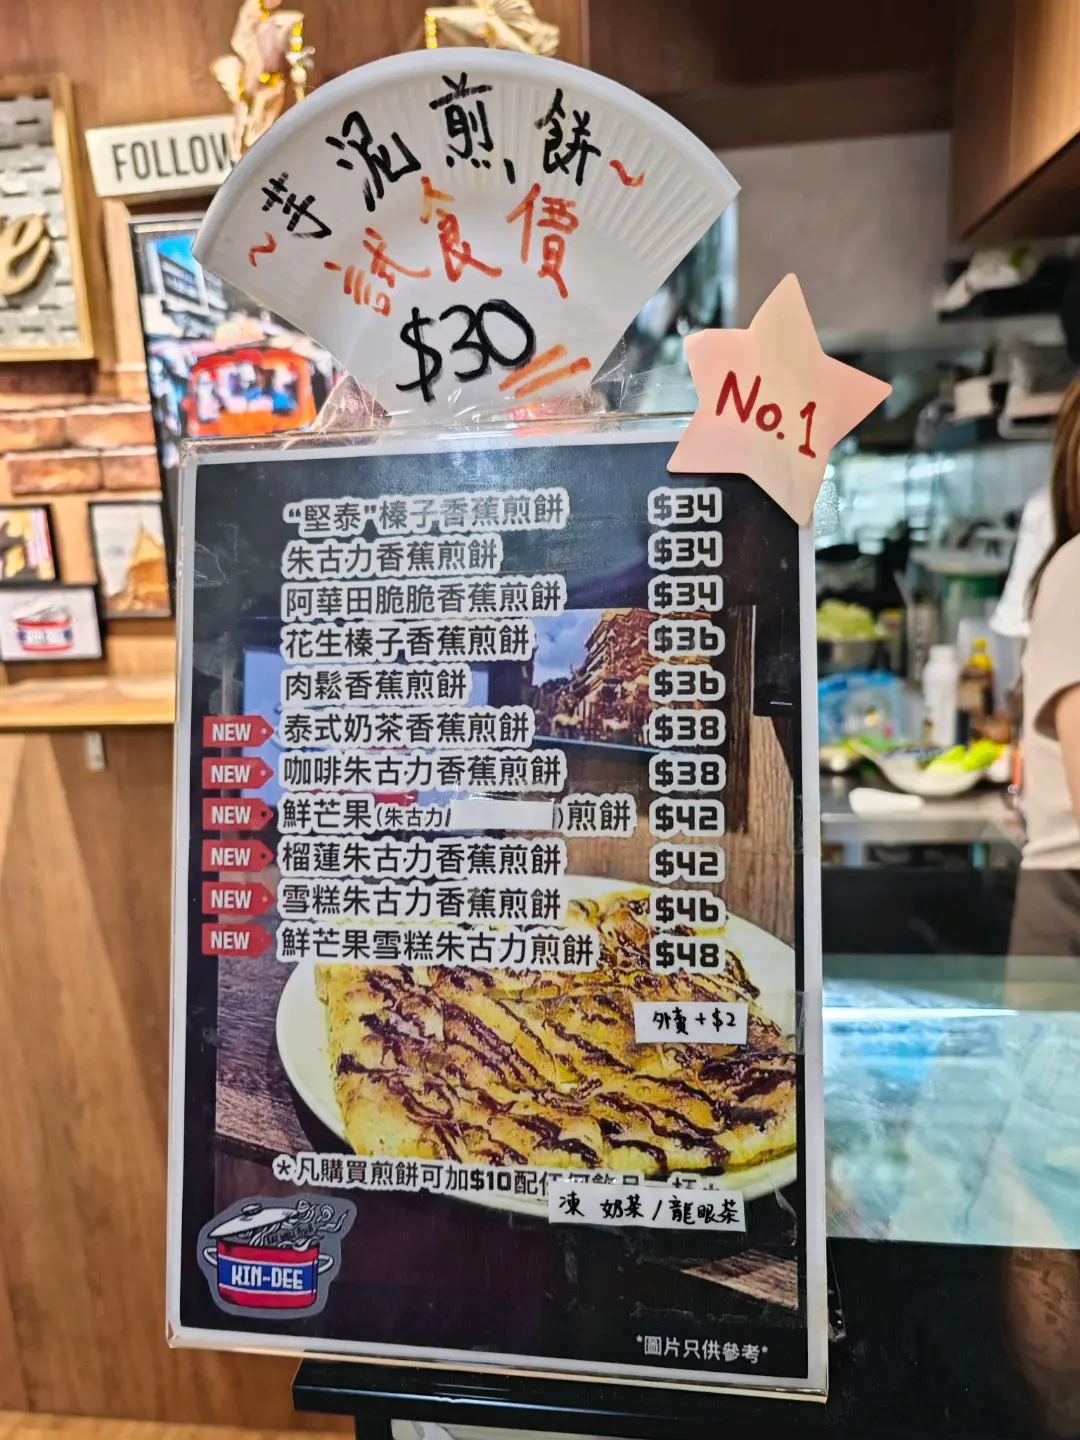 FOLLOW
~芋泥煎餅~
試食價
$30
No.1
“堅泰”榛子香蕉煎餅 $34
朱古力香蕉煎餅 $34
阿華田脆脆香蕉煎餅 $34
花生榛子香蕉煎餅 $36
肉鬆香蕉煎餅 $36
NEW 泰式奶茶香蕉煎餅 $38
NEW 咖啡朱古力香蕉煎餅 $38
NEW 鮮芒果(朱古力/ )煎餅 $42
NEW 榴蓮朱古力香蕉煎餅 $42
NEW 雪糕朱古力香蕉煎餅 $46
NEW 鮮芒果雪糕朱古力煎餅 $48
外賣+$2
*凡購買煎餅可加$10配
凍 奶茶/龍眼茶
KIN-DEE
*圖片只供參考*